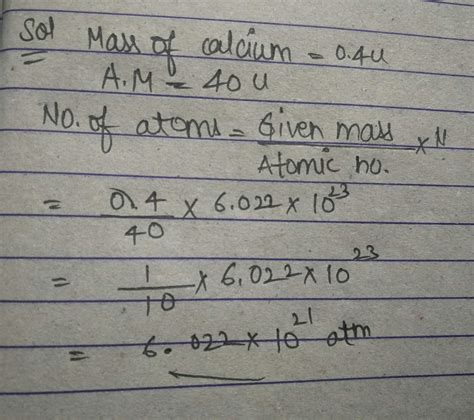 Sol Mass of calcium = 0.4U
A.M = 40 U
No. of atoms = Given mass / Atomic no. × N
= 0.4 / 40 × 6.022 × 10^23
= 1 / 10 × 6.022 × 10^23
= 6.022 × 10^21 atm